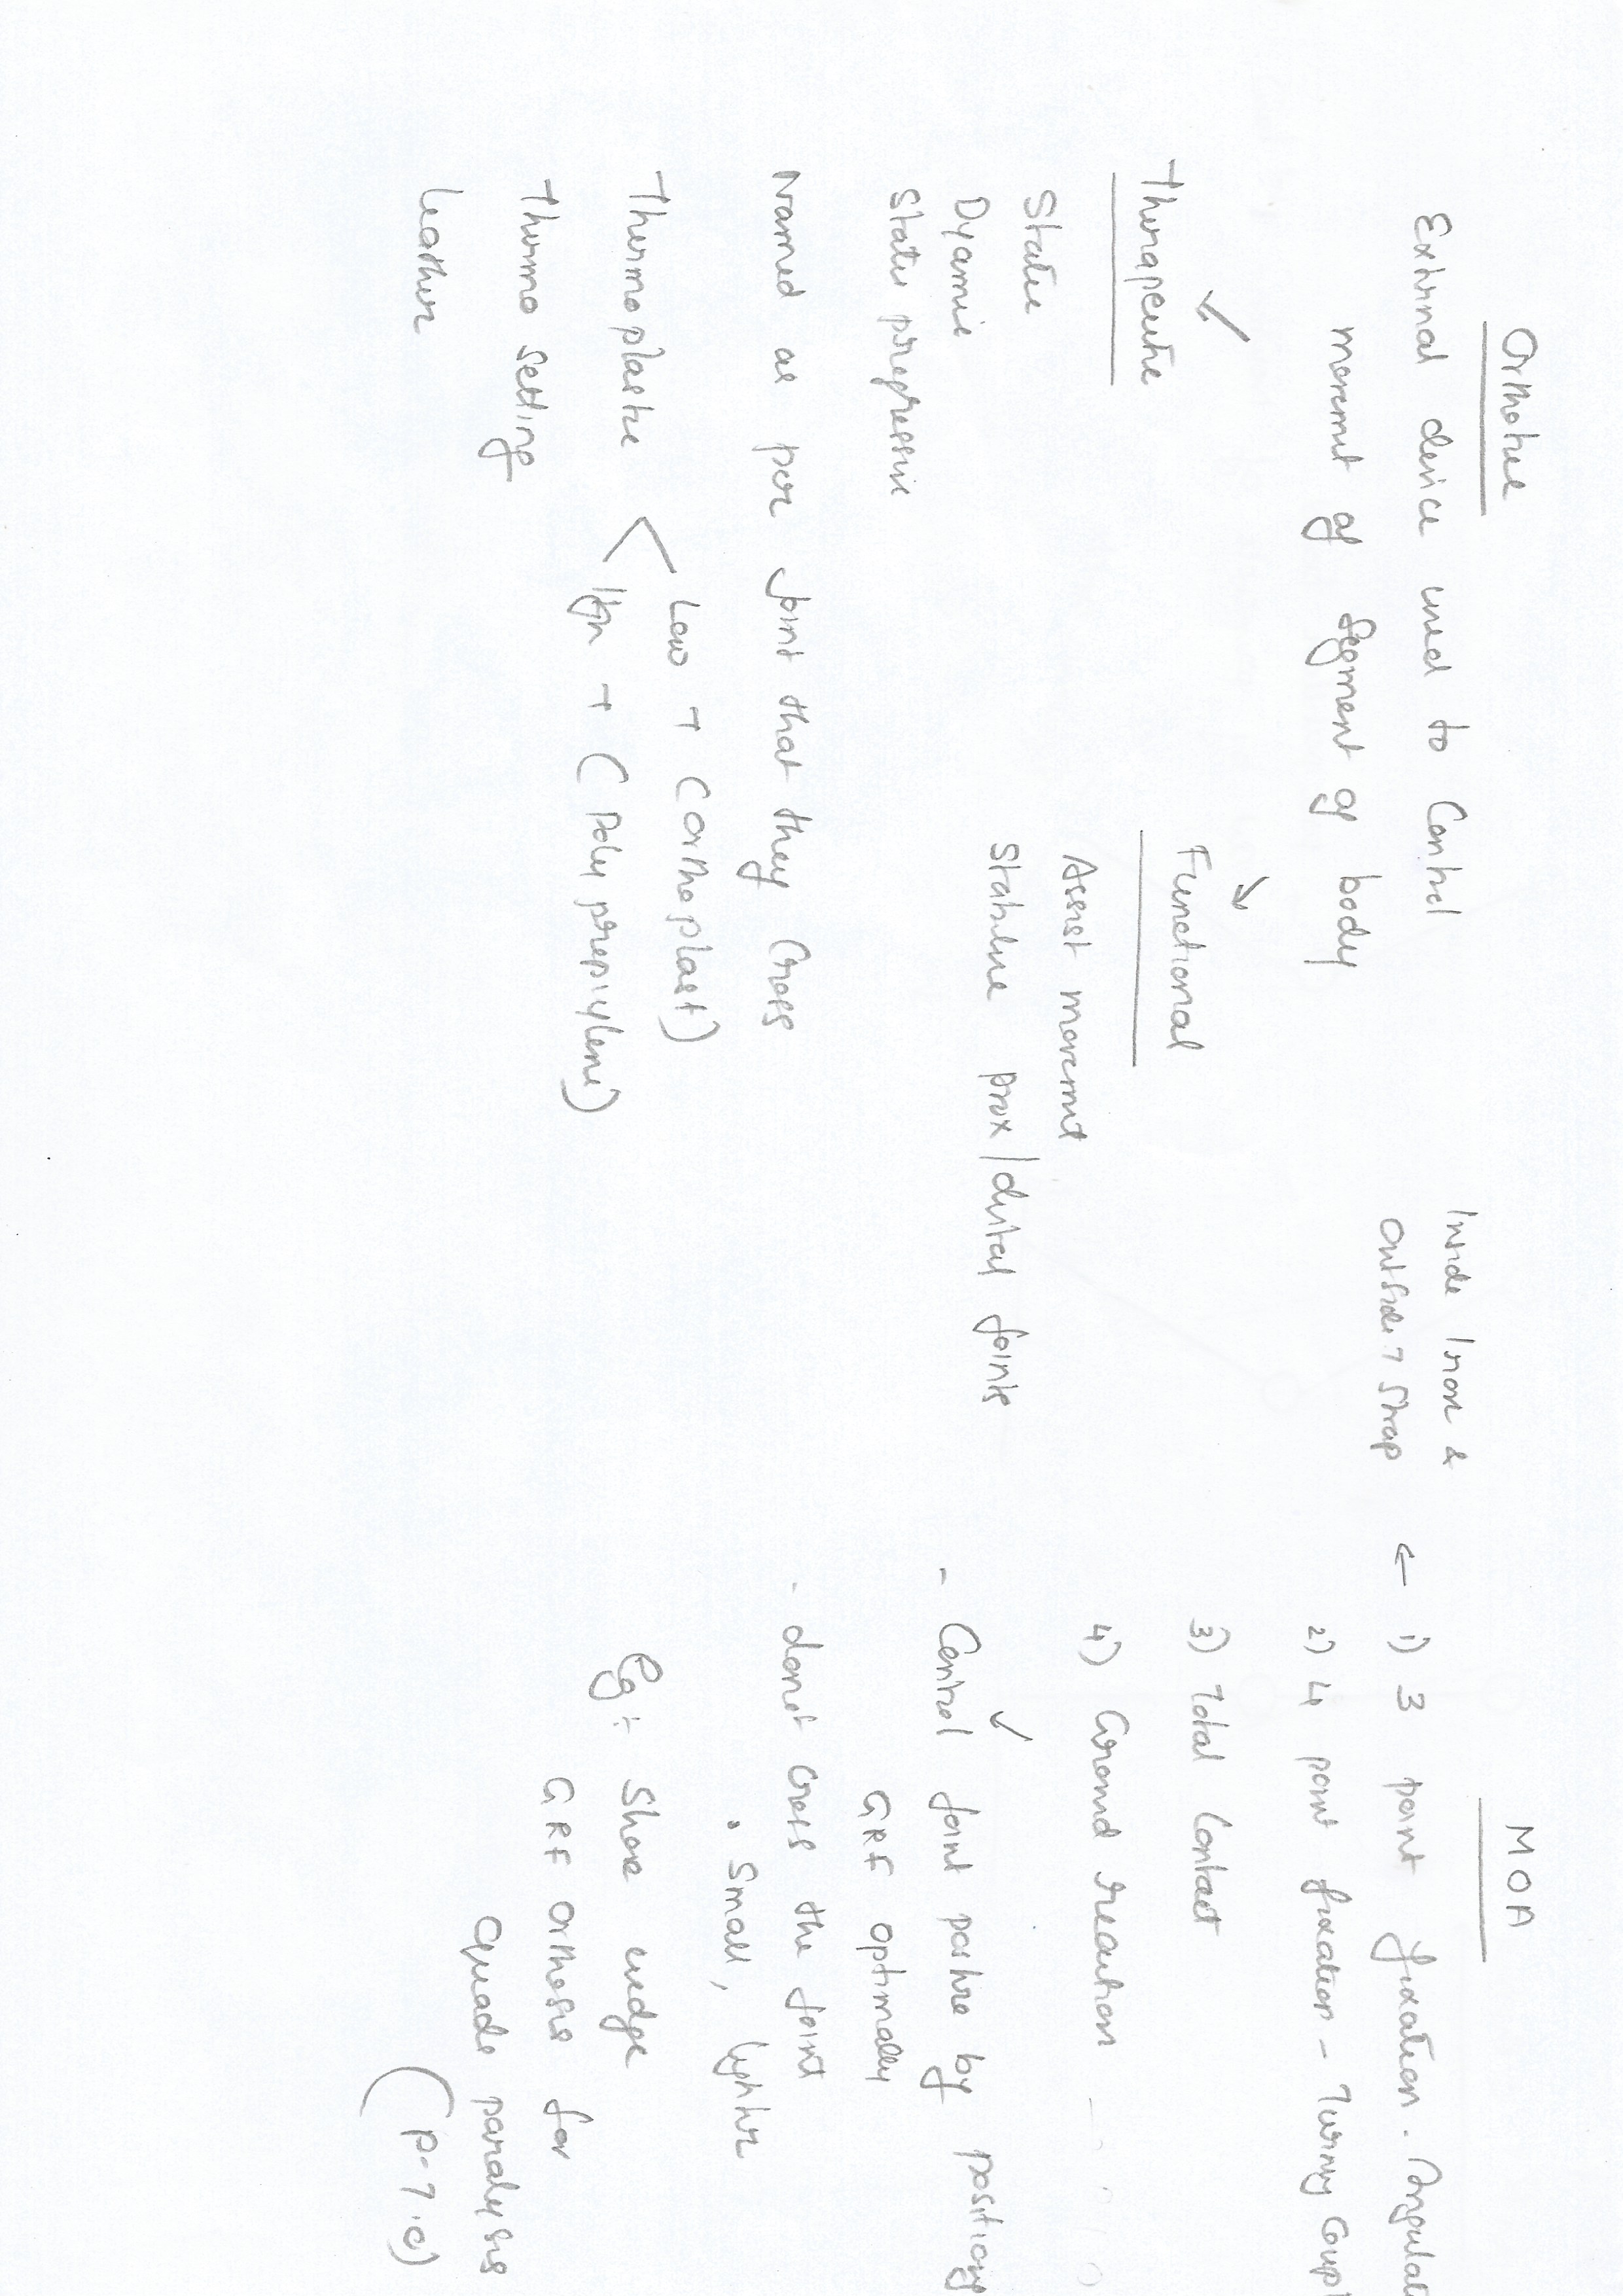 Orthotic
External device used to Control
movemnt of Segment of body
Therapeutic
Static
Dyamic
Static progressive
Functional
Assist movemnt
Stabilise prox/distal joints
Named as per joint that they Cross
Thermoplastic
Low → (Orthoplast)
High → (Poly propicylene)
Thermo setting
Leather
MOA
Inside Iron &
Outside T Strap
← 1) 3 point fixation - Angulat
2) 4 point fixation - Turning Coupl
3) Total Contact
4) Ground reaction
- Control joint posture by positiong
GRF Optimally
- donot Cross the joint
• Small, lighter
Eg:- Shoe wedge
GRF Orthosis for
quads paralysis